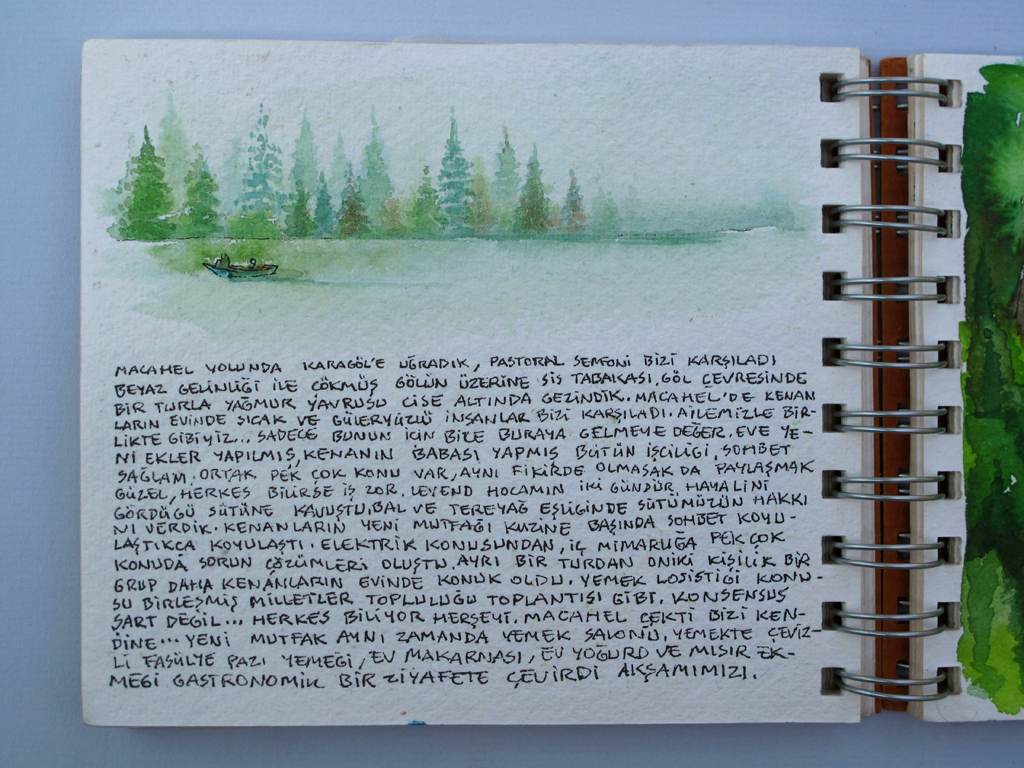 MACAHEL YOLUNDA KARAGÖL'E UĞRADIK, PASTORAL SEMFONİ BİZİ KARŞILADI
BEYAZ GELİNLİĞİ İLE ÇÖKMÜŞ GÖLÜN ÜZERİNE SİS TABAKASI, GÖL ÇEVRESİNDE
BİR TURLA YAĞMUR YAVRUSU ÇİSE ALTINDA GEZİNDİK. MACAHEL'DE KENAN
LARIN EVİNDE SICAK VE GÜLERYÜZLÜ İNSANLAR BİZİ KARŞILADI. AİLEMİZLE BİR-
LİKTE GİBİYİZ... SADECE BUNUN İÇİN BİLE BURAYA GELMEYE DEĞER. EVE YE-
Nİ EKLER YAPILMIŞ, KENANIN BABASI YAPMIŞ BÜTÜN İŞÇİLİĞİ, SOHBET
SAĞLAM, ORTAK PEK ÇOK KONU VAR, AYNI FİKİRDE OLMASAK DA PAYLAŞMAK
GÜZEL, HERKES BİLİRSE İŞ ZOR. LEVEND HOCAMIN İKİ GÜNDÜR HAYALİNİ
GÖRDÜĞÜ SÜTÜNE KAVUŞTU. BAL VE TEREYAĞ EŞLİĞİNDE SÜTÜMÜZÜN HAKKI
NI VERDİK. KENANLARIN YENİ MUTFAĞI KUZİNE BAŞINDA SOHBET KOYU-
LAŞTIKÇA KOYULAŞTI. ELEKTRİK KONUSUNDAN, İÇ MİMARLIĞA PEK ÇOK
KONUDA SORUN ÇÖZÜMLERİ OLUŞTU. AYRI BİR TURDAN ONİKİ KİŞİLİK BİR
GRUP DAHA KENANLARIN EVİNDE KONUK OLDU. YEMEK LOJİSTİĞİ KONU-
SU BİRLEŞMİŞ MİLLETLER TOPLULUĞU TOPLANTISI GİBİ. KONSENSUS
ŞART DEĞİL... HERKES BİLİYOR HERŞEYİ. MACAHEL ÇEKTİ BİZİ KEN-
DİNE... YENİ MUTFAK AYNI ZAMANDA YEMEK SALONU. YEMEKTE ÇEVİZ-
Lİ FASÜLYE PAZI YEMEĞİ, EV MAKARNASI, EV YOĞURDU VE MISIR EK-
MEĞİ GASTRONOMİK BİR ZİYAFETE ÇEVİRDİ AKŞAMIMIZI.